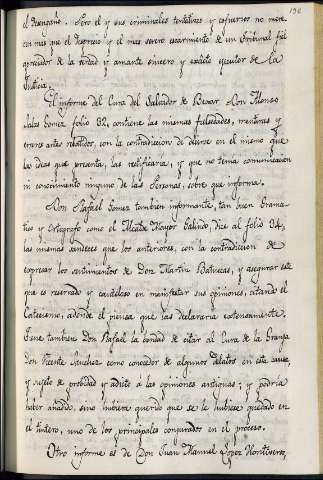 136
el desengaño. Pero él y sus criminales tentativas y esfuerzos no mere-
cen mas que el desprecio y el mas severo escarmiento de un Tribunal fiel
apreciador de la verdad y amante sincero y exácto ejecutor de la
Justicia.
El informe del Cura del Salvador de Bexar Don Alonso
Salas Gomez folio 32, contiene las mismas falsedades, mentiras y
errores antes relatados, con la contradiccion de decirse en el mismo que
las ideas que presenta, las rectificaria, y que no tenia comunicacion
ni conocimiento ninguno de las Personas, sobre que informa.
Don Rafael Gomez tambien informante, tan buen Grama-
tico y Ortografo como el Alcalde Mayor Galindo, dice al folio 34,
las mismas sandeces que los anteriores, con la contradiccion de
expresar los sentimientos de Don Martin Batuecas, y asegurar este
que es reservado y cauteloso en manifestar sus opiniones, citando el
Catecismo, adonde el piensa que las declararia extensamente.
Tiene tambien Don Rafael la bondad de citar al Cura de la Granja
Don Vicente Sanchez como conocedor de algunos delatos en esta causa,
y sujeto de probidad y adicto á las opiniones antiguas; y podria
haber añadido, sino hubiere querido que se le hubiese quedado en
el tintero, uno de los principales conjurados en el proceso.
Otro informe es de Don Juan Manuel Lopez Montesero,